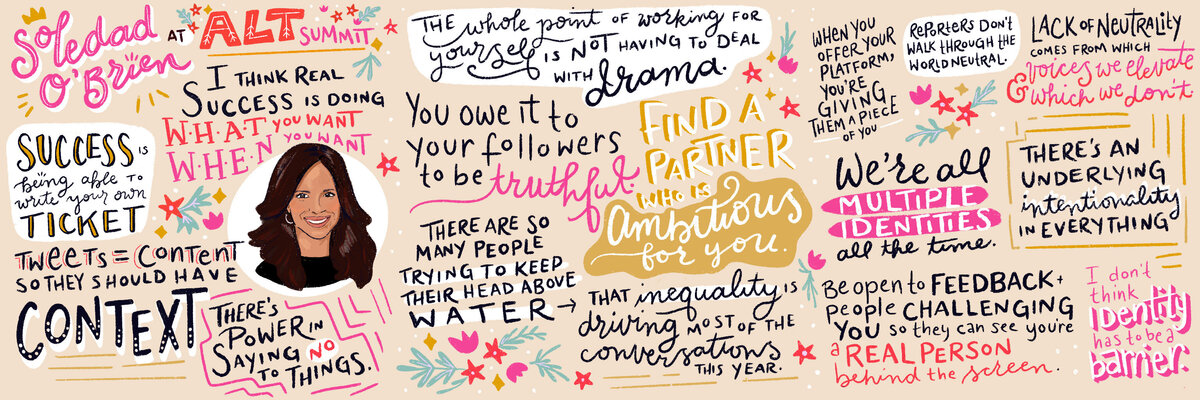 Soledad
O'Brien
AT
ALT
SUMMIT
I THINK REAL
SUCCESS IS DOING
W·H·A·T YOU WANT
W·H·E·N YOU WANT
SUCCESS IS
being able to
write your own
TICKET
Tweets = Content
SO THEY SHOULD HAVE
CONTEXT
THERE'S
POWER IN
SAYING NO
TO THINGS.
THE whole point OF WORKING FOR
yourself IS NOT HAVING TO DEAL
WITH drama.
You owe it to
your followers
to be truthful.
THERE ARE SO
MANY PEOPLE
TRYING TO KEEP
THEIR HEAD ABOVE
WATER →
FIND A
PARTNER
WHO IS
Ambitious
for you.
THAT inequality IS
driving MOST OF THE
conversations
THIS YEAR.
WHEN YOU
OFFER YOUR
PLATFORM,
YOU'RE
GIVING
THEM A PIECE
OF YOU
REPORTERS DON'T
WALK THROUGH THE
WORLD NEUTRAL.
LACK OF NEUTRALITY
COMES FROM WHICH
voices we elevate
& which we don't
We're all
MULTIPLE
IDENTITIES
all the time.
THERE'S AN
UNDERLYING
intentionality
IN EVERYTHING
Be open to FEEDBACK +
people CHALLENGING
YOU so they can see you're
a REAL PERSON
behind the screen.
I don't
think
Identity
has to be a
barrier.